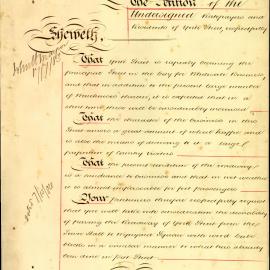 The Petition of the
Undersigned Ratepayers and
Residents of York Street respectfully
Sheweth,
That York Street is rapidly becoming the
principal Street in the City for Wholesale Business
and that in addition to the present large number
of Warehouses thereon, it is expected that in a
short time there will be considerably increased
That the character of the business in this
Street causes a great amount of wheel traffic and
is also the means of drawing to it a large
proportion of Country visitors
That the present condition of the roadway
is a hindrance to business and that in wet weather
it is almost impassable for foot passengers
Your petitioners therefore respectfully request
that you will take into consideration the desirability
of paving the Roadway of York Street from the
Town Hall to Wynyard Square with wood
blocks in a similar manner to what has already
been done in Pitt Street